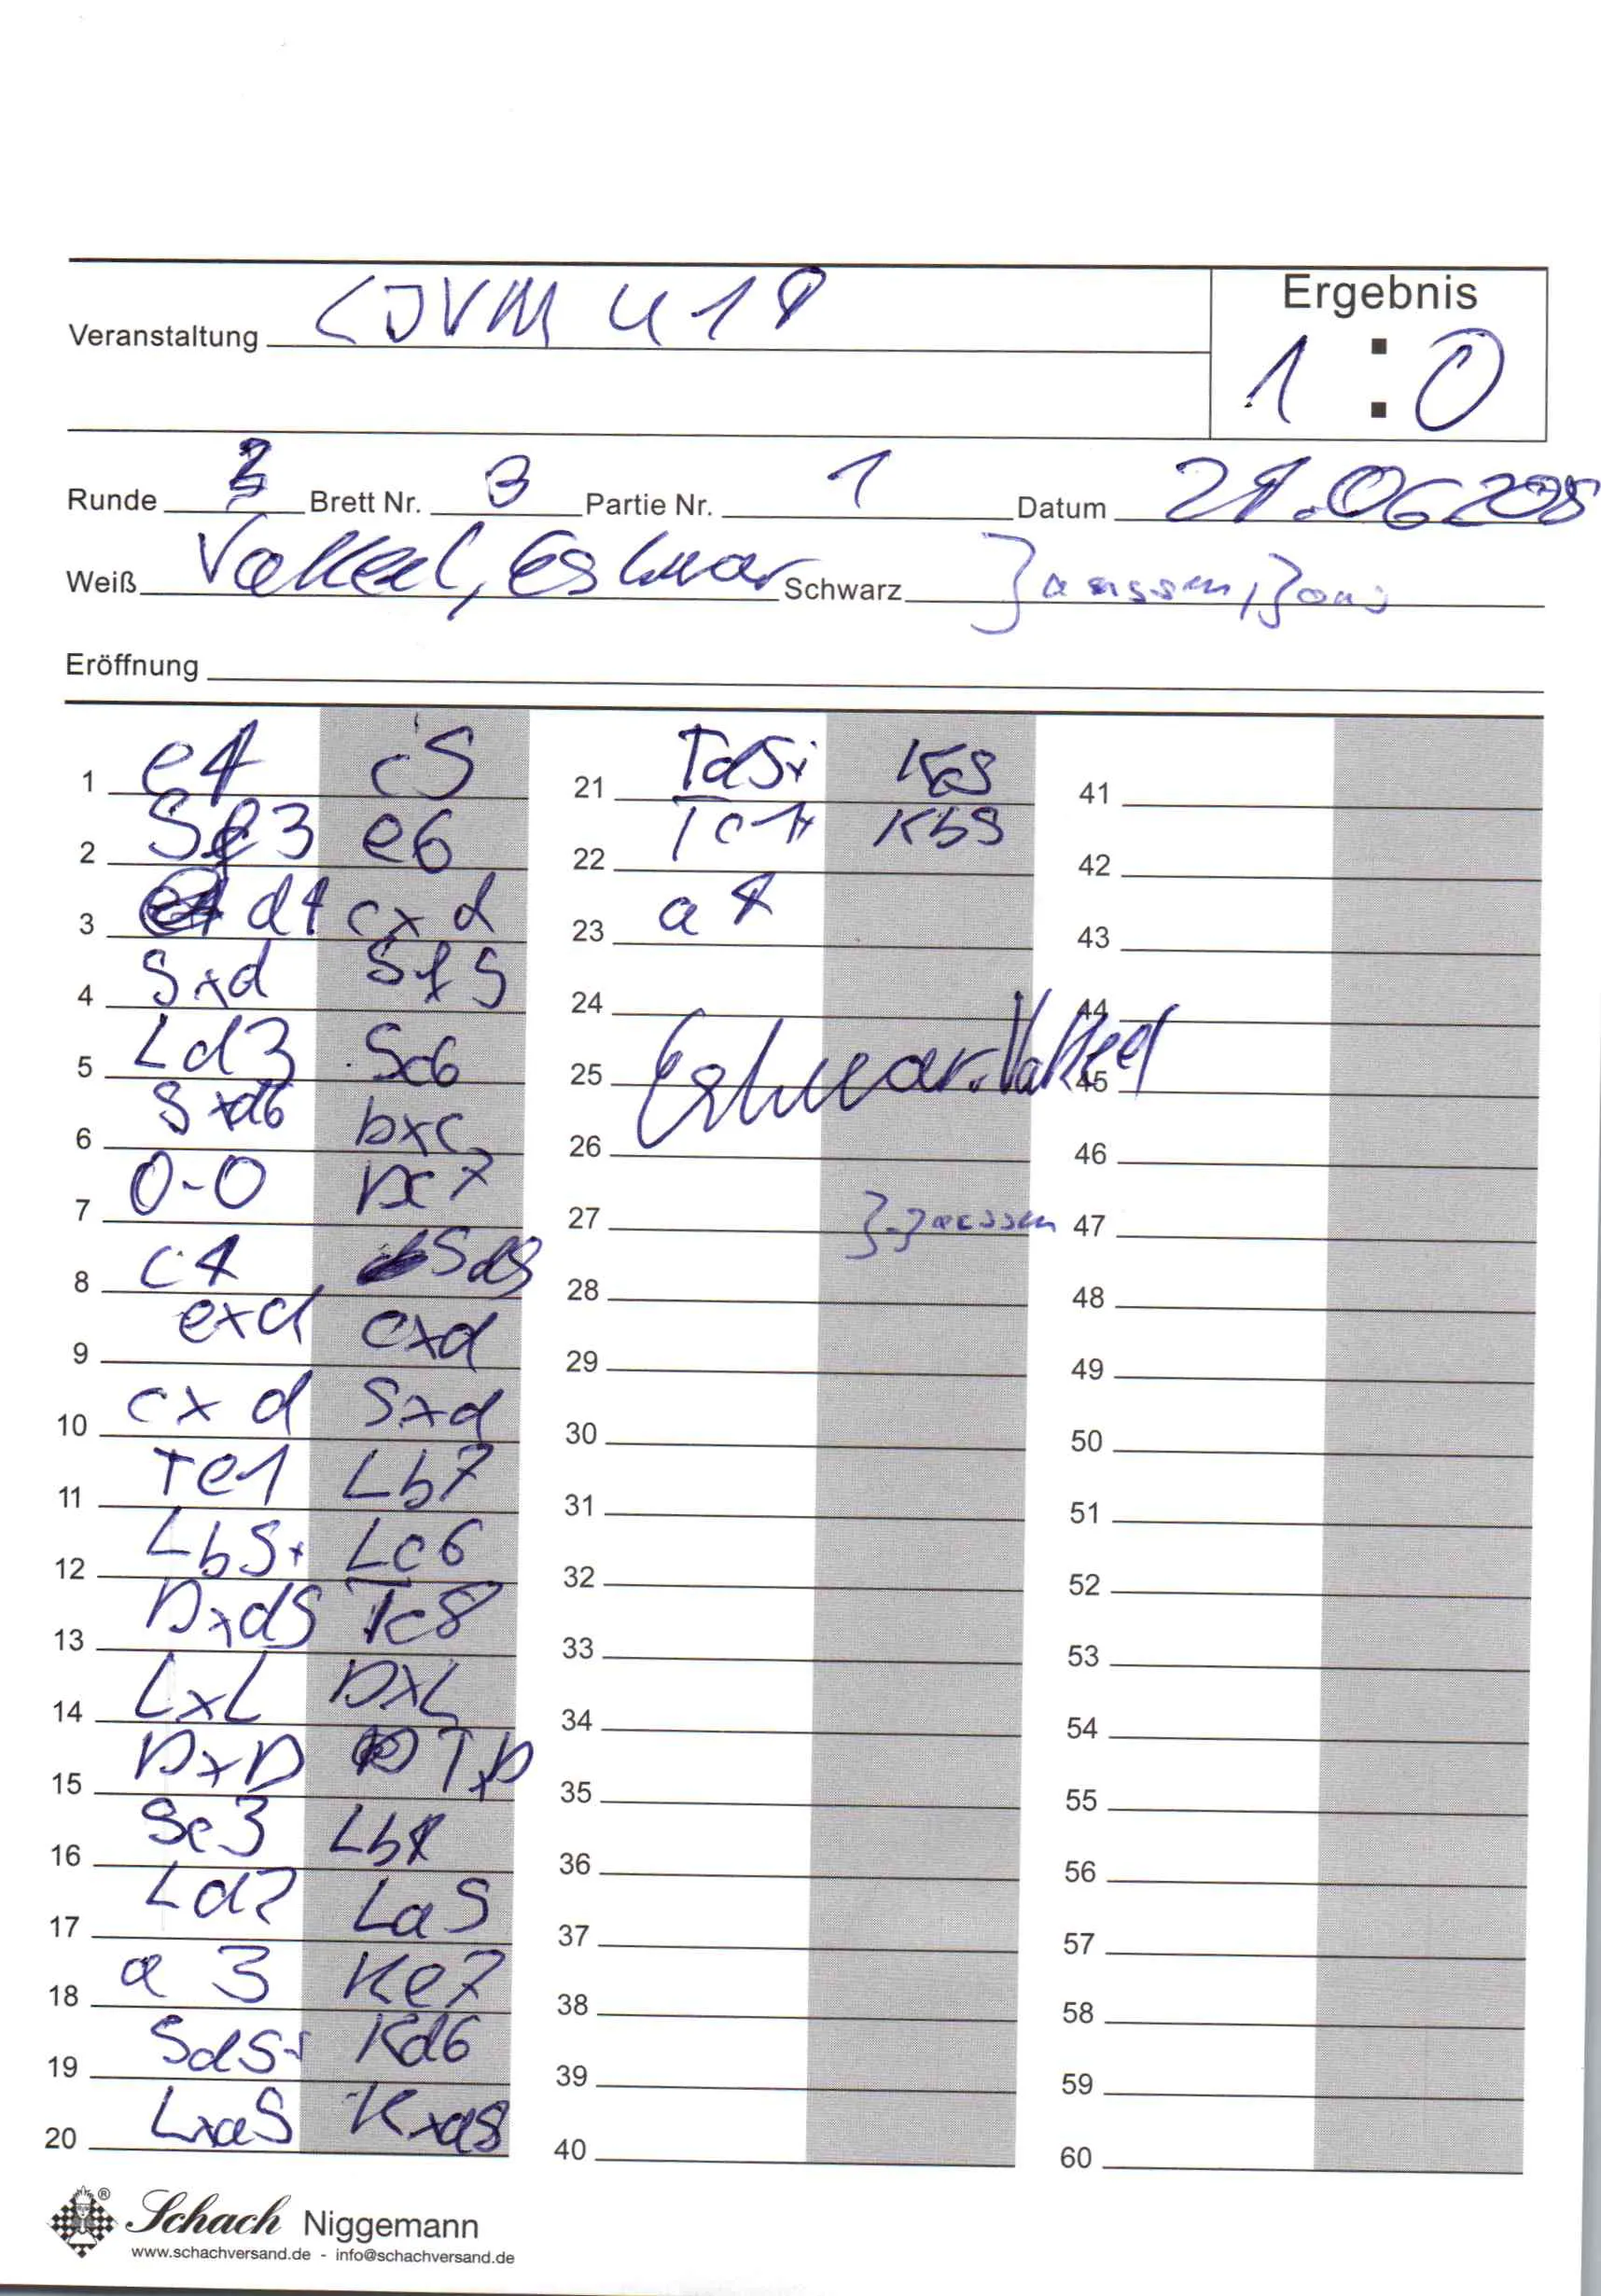 LJVM U18
Ergebnis
Veranstaltung
1 : 0
Runde Brett Nr. 3 Partie Nr. 1 Datum
Weiß Vakeel, Eshwar Schwarz Janssen, Joni
Eröffnung
1 e4 c5
2 Sf3 e6
3 d4 cxd
4 Sxd Sf6
5 Ld3 Sc6
6 Sxc6 bxc
7 0-0 Dc7
8 c4 d5
9 exd exd
10 cxd Sxd
11 Te1 Lb7
12 Lb5+ Lc6
13 Dxd5 Tc8
14 LxL DxL
15 DxD TxD
16 Sc3 Lb4
17 Ld2 La5
18 a3 Ke7
19 Sd5+ Kd6
20 Lxa5 Kxd5
21 Td5+ Kc5
22 Tc1+ Kb5
23 a4
24
25 Eshwar.Vakeel
26
27 J.Janssen
28
29
30
31
32
33
34
35
36
37
38
39
40
41
42
43
44
45
46
47
48
49
50
51
52
53
54
55
56
57
58
59
60
Schach Niggemann
www.schachversand.de - info@schachversand.de